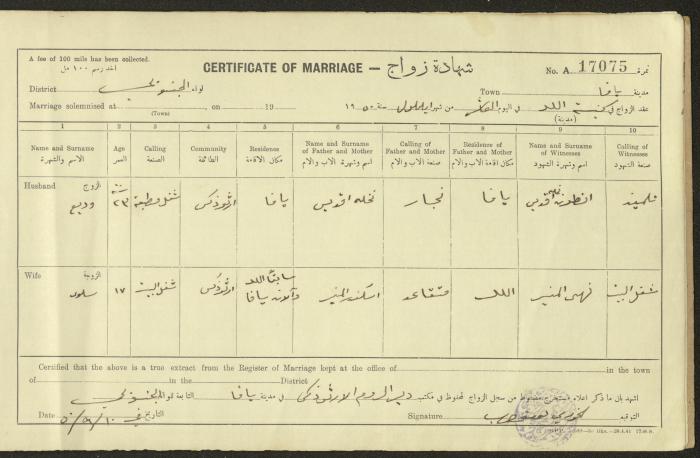 A fee of 100 mils has been collected.
أخذ رسم ١٠٠ مل
CERTIFICATE OF MARRIAGE – شهادة زواج
No. A 17075 نمرة
District لواء الجنوبي
Town مدينة يافا
Marriage solemnised at , on 19
عقد الزواج في كنيسة اللد في اليوم من شهر ايلول سنة ١٩٥٠
(Town) (مدينة)
1 2 3 4 5 6 7 8 9 10
Name and Surname Age Calling Community Residence Name and Surname of Father and Mother Calling of Father and Mother Residence of Father and Mother Name and Surname of Witnesses Calling of Witnesses
الاسم والشهرة العمر الصنعة الطائفة مكان الاقامة اسم وشهرة الاب والام صنعة الاب والام مكان اقامة الاب والام اسم وشهرة الشهود صنعة الشهود
Husband الزوج
وديع ٢٣ سنة ارثوذكس يافا نخله نجار يافا انطون
Wife الزوجة
سلوى ١٧ شغل البيت ارثوذكس سابقا اللد يافا اسكندر المنير متقاعد اللد المنير شغل البيت
Certified that the above is a true extract from the Register of Marriage kept at the office of in the town
of in the District
اشهد بان ما ذكر اعلاه مستخرج مضبوط من سجل الزواج المحفوظ في مكتب دير الروم الارثوذكس في مدينة يافا التابعة للواء الجنوبي
Date التاريخ في ١٠/٩/٥٠
Signature التوقيع